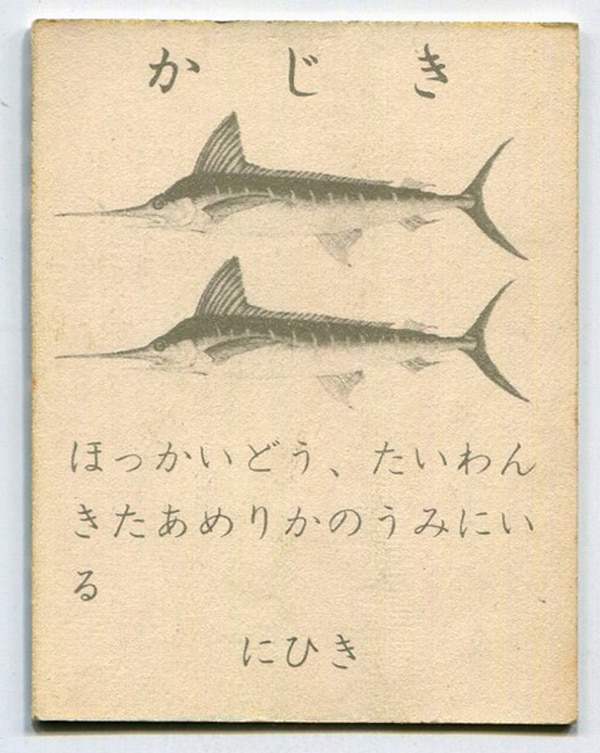 かじき
ほっかいどう、たいわん
きたあめりかのうみにい
る
にひき